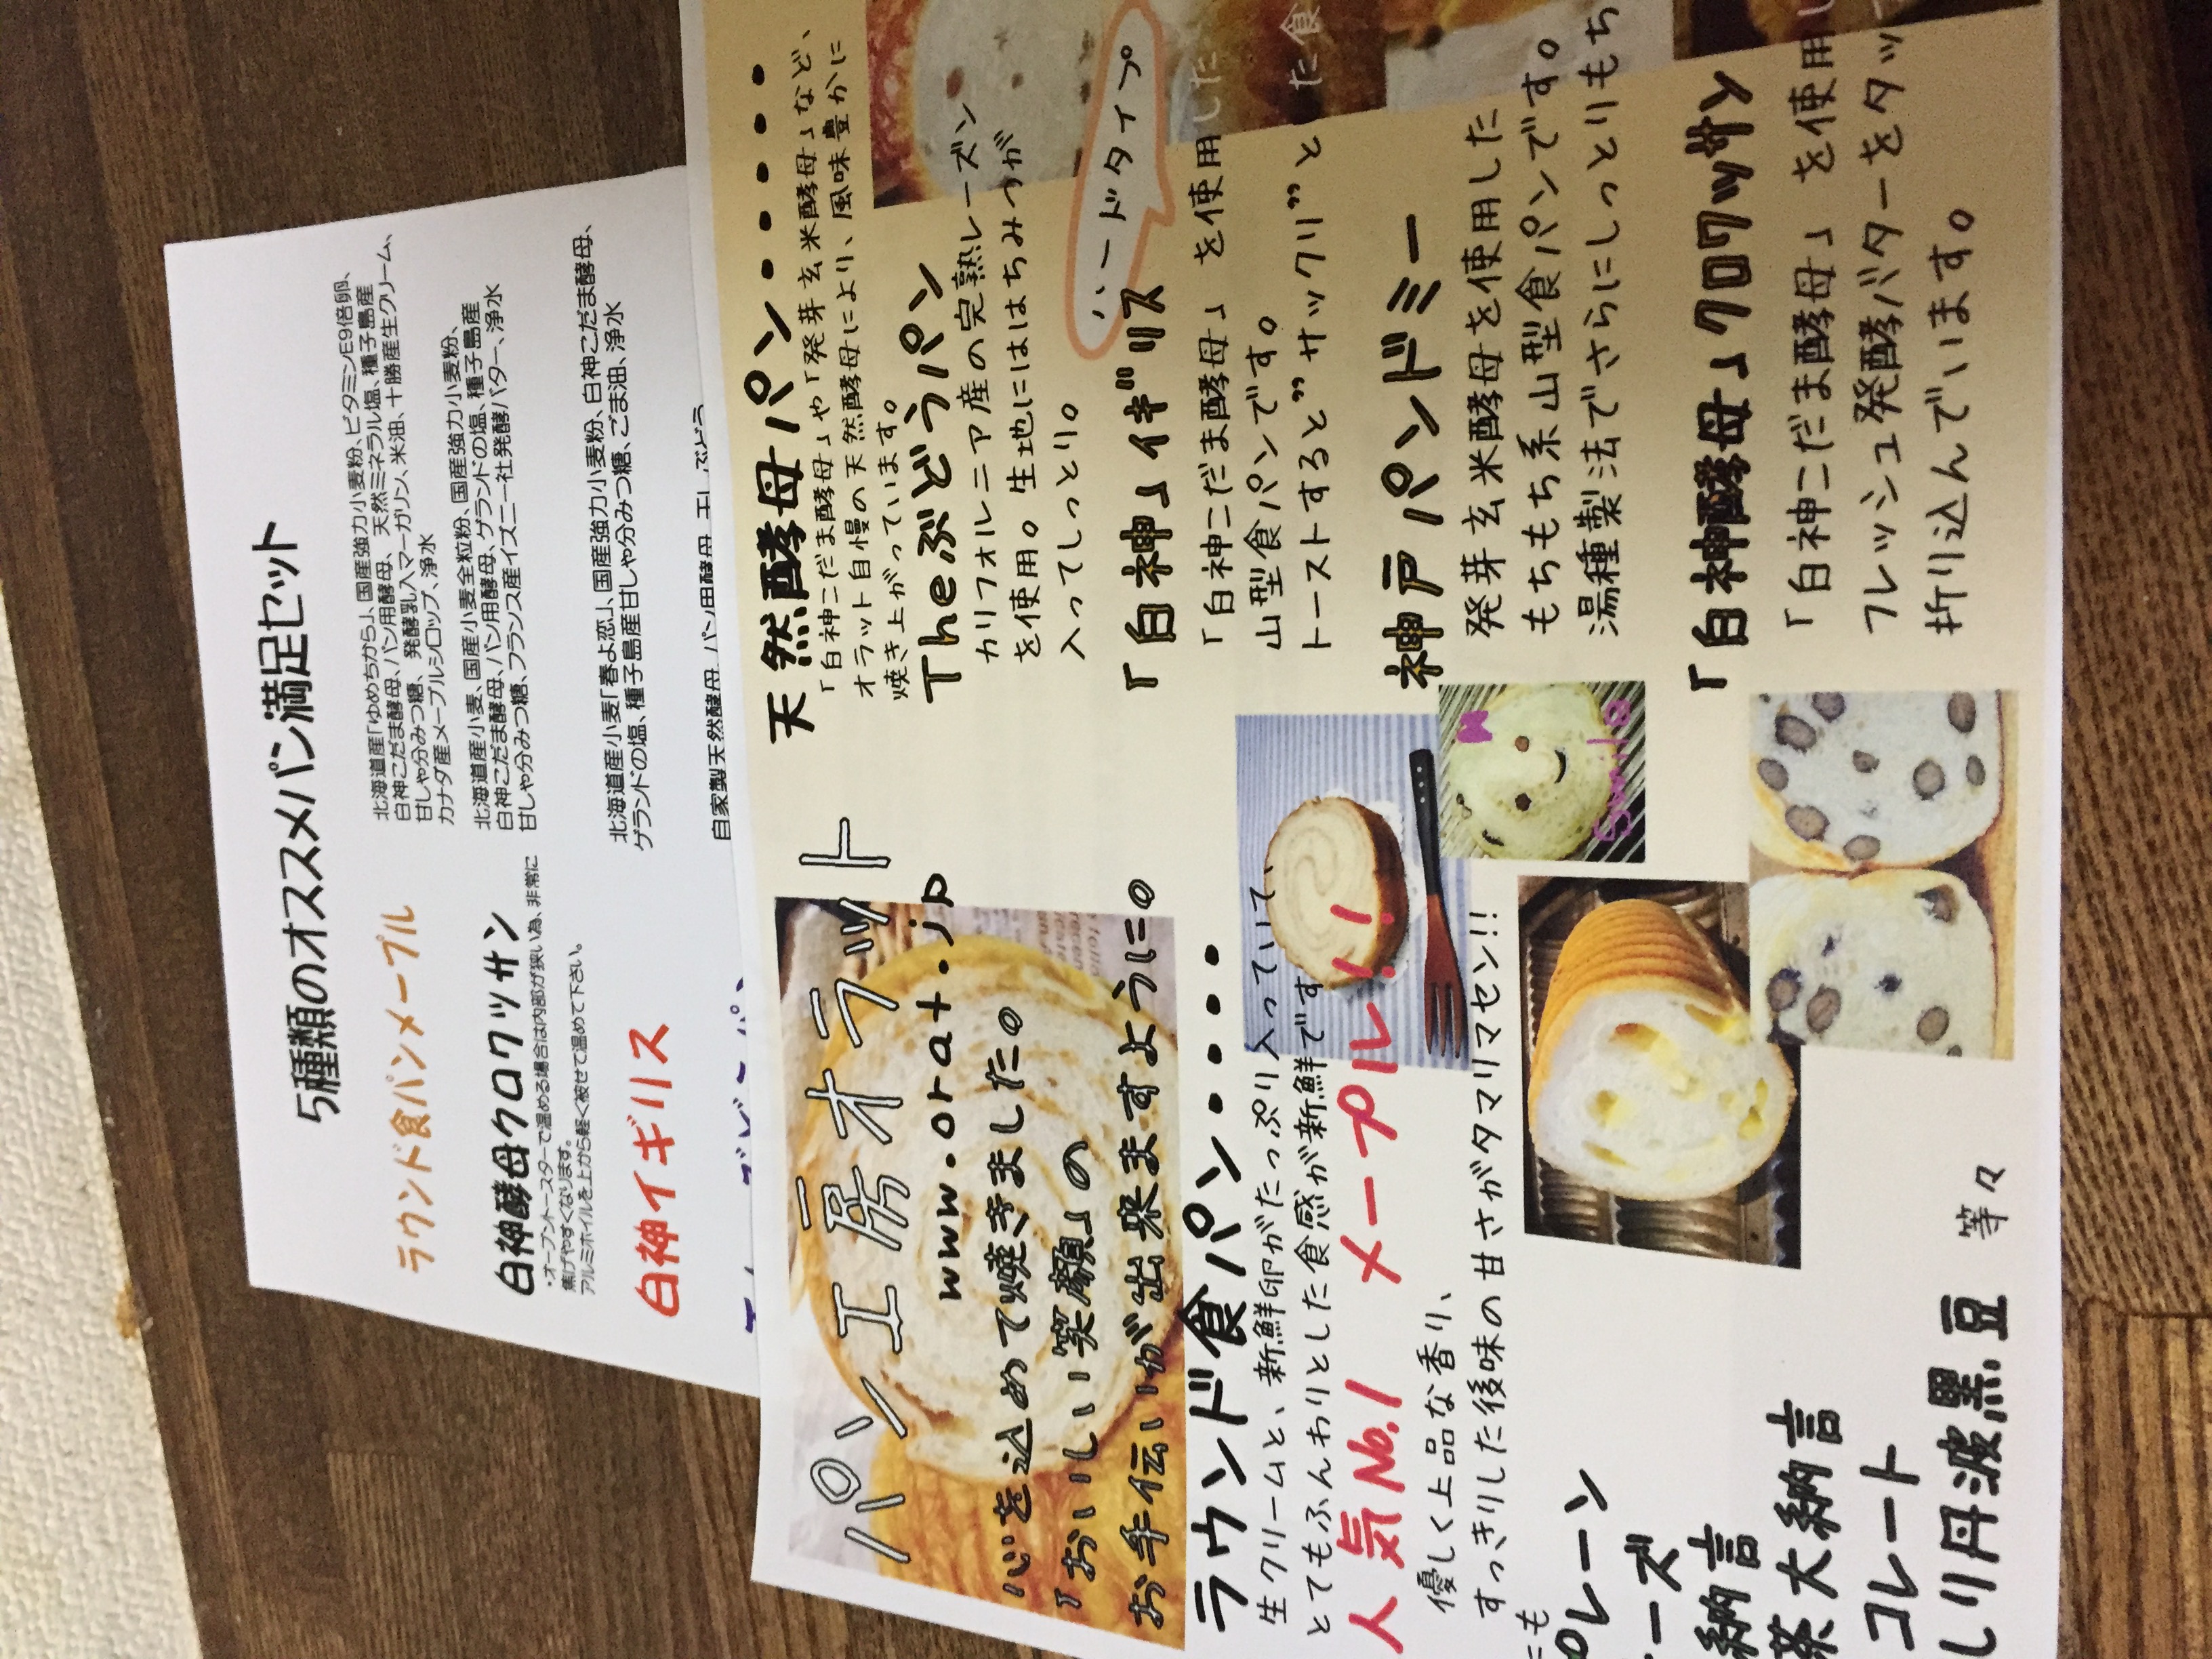 5種類のオススメパン満足セット
ラウンド食パンメープル
北海道産「ゆめちから」、国産強力小麦粉、ビタミンE9倍卵、
白神こだま酵母、パン用酵母、天然ミネラル塩、種子島産
甘しゃ分みつ糖、発酵乳入マーガリン、米油、十勝産生クリーム、
カナダ産メープルシロップ、浄水
白神酵母クロワッサン
・オーブントースターで温める場合は内部が狭い為、非常に
焦げやすくなります。
アルミホイルを上から軽く被せて温めて下さい。
北海道産小麦、国産小麦全粒粉、国産強力小麦粉、
白神こだま酵母、パン用酵母、ゲランドの塩、種子島産
甘しゃ分みつ糖、フランス産イズニー社発酵バター、浄水
白神イギリス
北海道産小麦「春よ恋」、国産強力小麦粉、白神こだま酵母、
ゲランドの塩、種子島産甘しゃ分みつ糖、ごま油、浄水
自家製天然酵母、パン用酵母、干しぶどう
パン工房オラット
www.orat.jp
心を込めて焼きました。
『おいしい笑顔』の
お手伝いが出来ますように。
ラウンド食パン・・・・
生クリームと、新鮮卵がたっぷり入っていて、
とてもふんわりとした食感が新鮮です
人気No.1 メープル!!
優しく上品な香り、
すっきりした後味の甘さがタマリマセン!!
Smile
にも
プレーン
ーズ
納言
茶大納言
コレート
しり丹波黒豆 等々
天然酵母パン・・・・・
「白神こだま酵母」や「発芽玄米酵母」など、
オラット自慢の天然酵母により、風味豊かに
焼き上がっています。
Theぶどうパン
カリフォルニア産の完熟レーズン
を使用。生地にははちみつが
入ってしっとり。
「白神」イギリス
ハードタイプ
「白神こだま酵母」を使用した
山型食パンです。
トーストすると"サックリ"と
た食
神戸パンドミー
発芽玄米酵母を使用した
もちもち系山型食パンです。
湯種製法でさらにしっとりもち
「白神酵母」クロワッサン
「白神こだま酵母」を使用し
フレッシュ発酵バターをタッ
折り込んでいます。